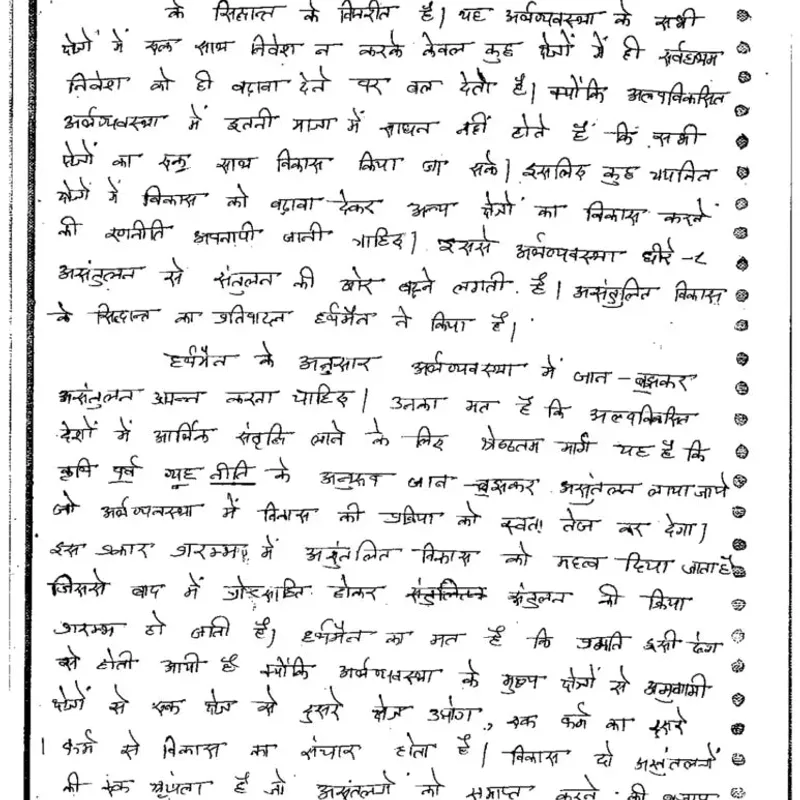 के सिद्धान्त के विपरीत है। यह अर्थव्यवस्था के सभी
क्षेत्रों में एक साथ निवेश न करके केवल कुछ क्षेत्रों में ही सर्वप्रथम
निवेश को ही बढ़ावा देने पर बल देता है। क्योंकि अल्पविकसित
अर्थव्यवस्था में इतनी मात्रा में साधन नहीं होते हैं कि सभी
क्षेत्रों का एक साथ विकास किया जा सके। इसलिए कुछ चयनित
क्षेत्रों में विकास को बढ़ावा देकर अन्य क्षेत्रों का विकास करने
की रणनीति अपनायी जानी चाहिए। इससे अर्थव्यवस्था धीरे-२
असंतुलन से संतुलन की ओर बढ़ने लगती है। असंतुलित विकास
के सिद्धान्त का प्रतिपादन हर्षमैन ने किया है।
हर्षमैन के अनुसार अर्थव्यवस्था में जान-बुझकर
असंतुलन उत्पन्न करना चाहिए। उनका मत है कि अल्पविकसित
देशों में आर्थिक संवृद्धि लाने के लिए श्रेष्ठतम मार्ग यह है कि
पूर्व व्यूह नीति के अनुरूप जान-बुझकर असंतुलन लाया जाये
जो अर्थव्यवस्था में विकास की प्रक्रिया को स्वतः तेज कर देगा।
इस प्रकार प्रारम्भ में असंतुलित विकास को महत्व दिया जाता है
जिससे बाद में प्रोत्साहित होकर संतुलन की क्रिया
प्रारम्भ हो जाती है। हर्षमैन का मत है कि प्रगति इसी ढंग
से होती आयी है क्योंकि अर्थव्यवस्था के मुख्य क्षेत्रों से अनुगामी
क्षेत्रों से एक क्षेत्र से दुसरे क्षेत्र उद्योग, एक फर्म का दुसरे
फर्म से विकास का संचार होता है। विकास दो असंतुलनों
की एक श्रृंखला है जो असंतुलनों को समाप्त करने की बजाय